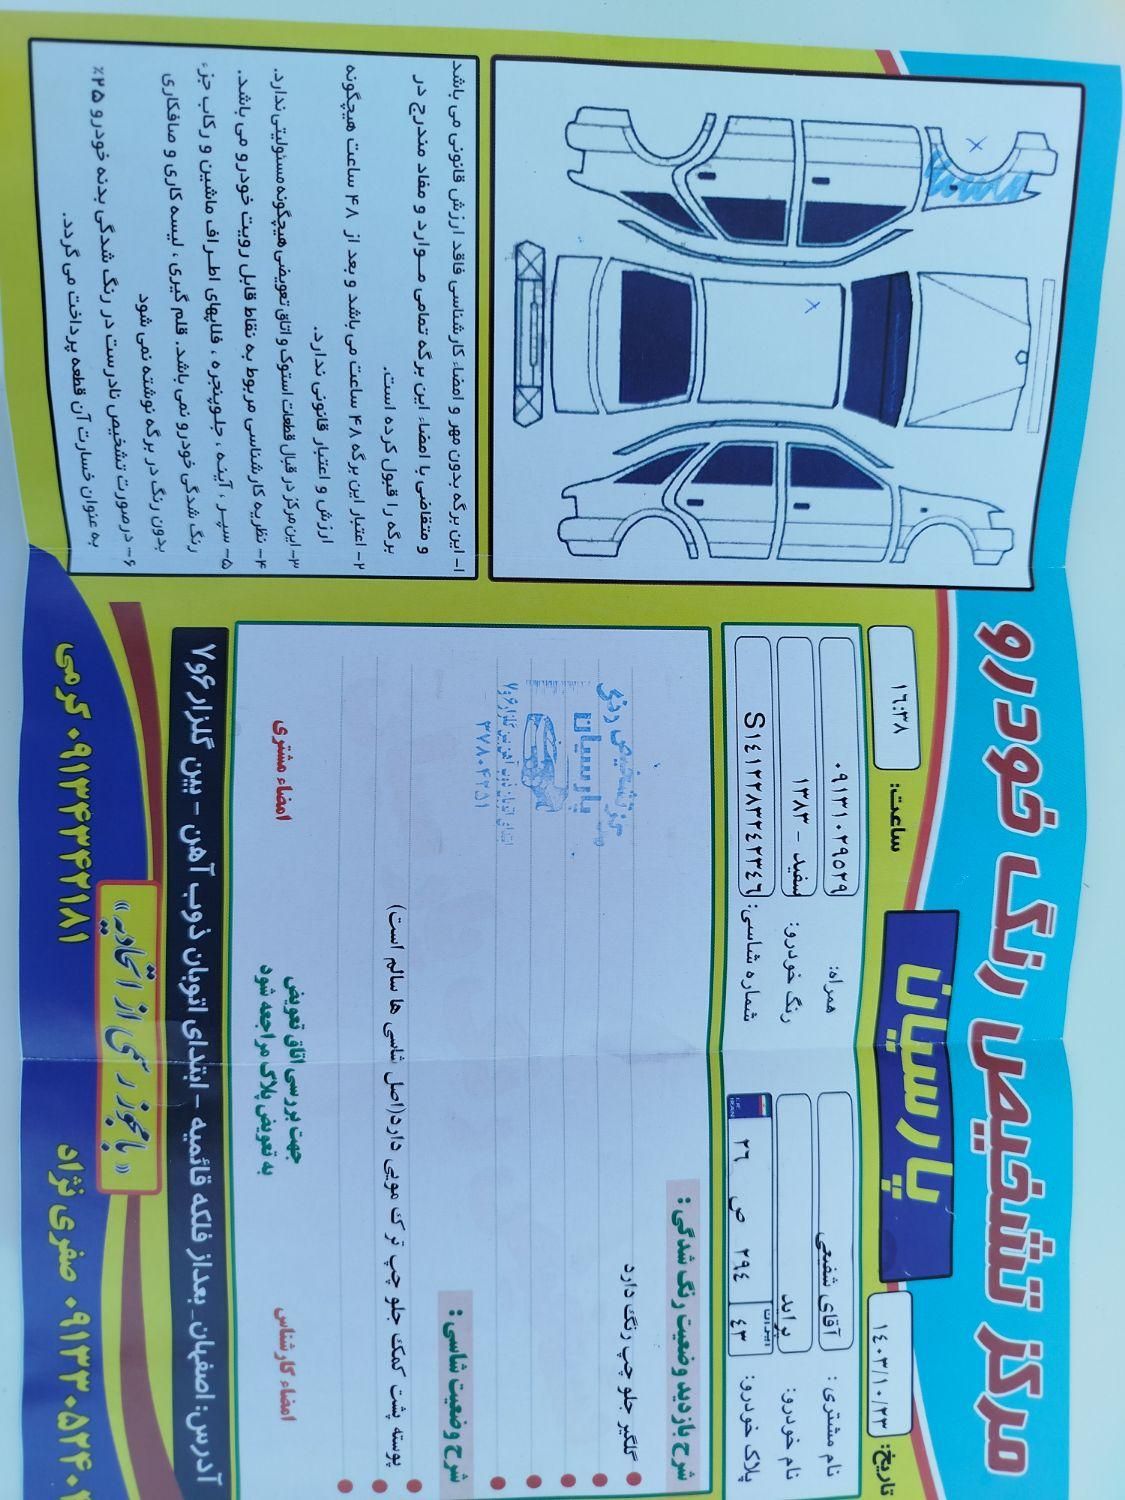 مرکز تشخیص رنگ خودرو
پارسیان
تاریخ: ۱۴۰۳/۱۰/۲۳
ساعت: ۱۶:۳۸
نام مشتری: آقای شفیعی
همراه: ۰۹۱۳۱۰۲۹۵۲۹
نام خودرو: پراید
رنگ خودرو: سفید - ۱۳۸۳
پلاک خودرو: ایران ۴۳ ۲۹۴ ص ۲۶
I.R. IRAN
شماره شاسی: S۱۴۱۲۲۸۳۲۴۲۳۴۶
شرح بازدید وضعیت رنگ شدگی:
گلگیر جلو چپ رنگ دارد
شرح وضعیت شاسی:
پوسته پشت کمک جلو چپ ترک مویی دارد(اصل شاسی ها سالم است)
مرکز تشخیص رنگ
پارسیان
۳۷۸۰۴۲۵۱
امضاء کارشناس
جهت بررسی اتاق تعویض
به تعویض پلاک مراجعه شود
امضاء مشتری
آدرس: اصفهان_ بعداز فلکه قائمیه - ابتدای اتوبان ذوب آهن - بین گلزار ۶و۷
«با مجوز رسمی از اتحادیه»
۰۹۱۳۴۳۴۲۱۸۱ کرمی
صفری نژاد
۱- این برگه بدون مهر و امضاء کارشناسی فاقد ارزش قانونی می باشد
و متقاضی با امضاء این برگه تمامی موارد و مفاد مندرج در
برگه را قبول کرده است.
۲- اعتبار این برگه ۴۸ ساعت می باشد و بعد از ۴۸ ساعت هیچگونه
ارزش و اعتبار قانونی ندارد.
۳- این مرکز در قبال قطعات استوک و اتاق تعویضی هیچگونه مسئولیتی ندارد.
۴- نظریه کارشناسی مربوط به نقاط قابل رویت خودرو می باشد.
۵- سپر ، آینه ، جلوپنجره ، فلاپهای اطراف ماشین و رکاب جزء
رنگ شدگی خودرو نمی باشد. قلم گیری ، لیسه کاری و صافکاری
بدون رنگ در برگه نوشته نمی شود
۶- درصورت تشخیص نادرست در رنگ شدگی بدنه خودرو ۲۵٪
به عنوان خسارت آن قطعه پرداخت می گردد.